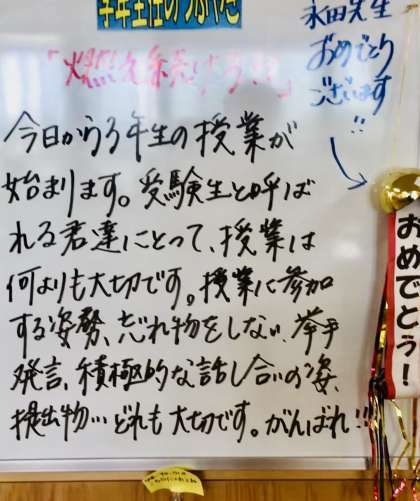 学年主任のつぶやき
「燃え続けろ!!」
永田先生
おめでとう
ございます
!!
今日から3年生の授業が
始まります。受験生と呼ば
れる君達にとって、授業は
何よりも大切です。授業に参加
する姿勢、忘れ物をしない、挙手
発言、積極的な話し合いの姿、
提出物…どれも大切です。がんばれ!!
おめでとう!